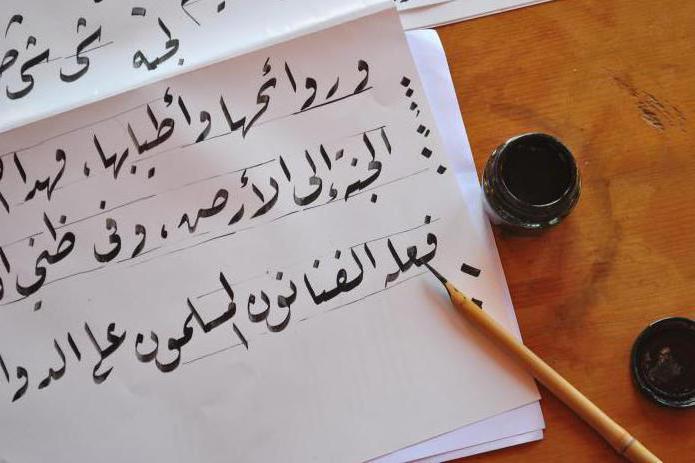 وروائحها وأطيابها، فهذا
الجنة إلى الأرض، وفى ظني
فعله الفنانون المسلمون على الدوا